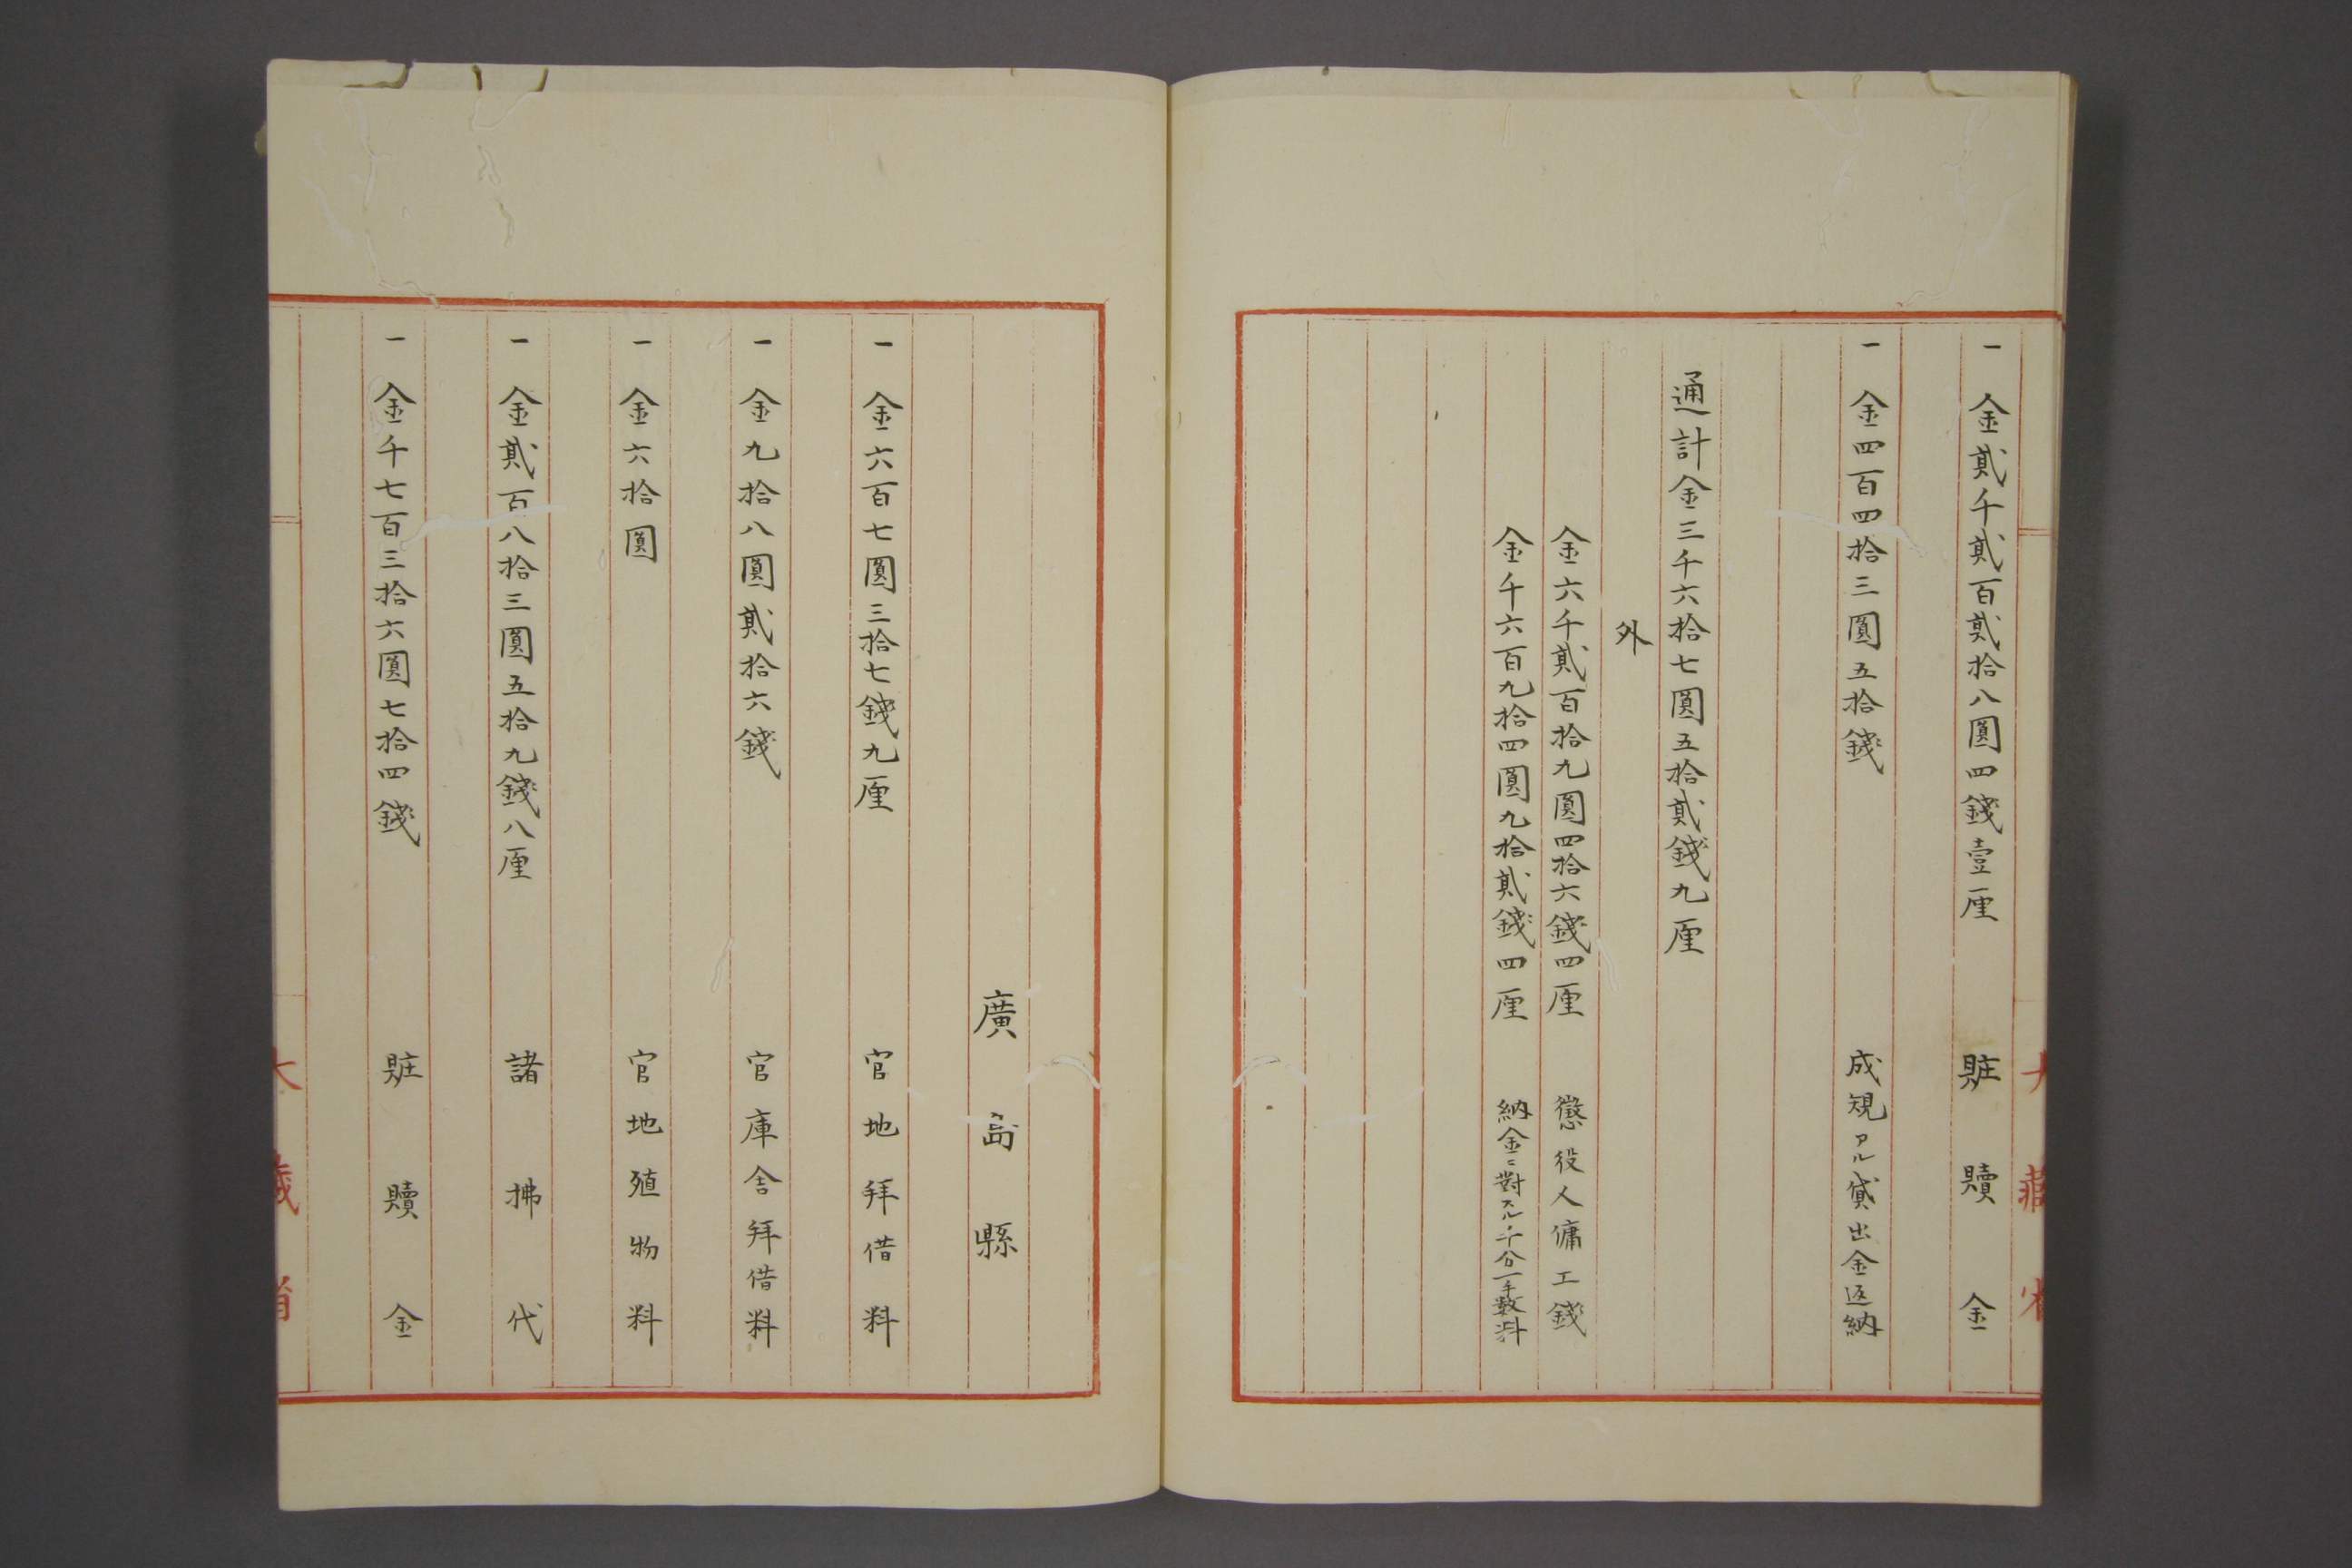 一金貳千貳百貳拾八圓四錢壹厘　賍贖金
一金四百四拾三圓五拾錢　成規アル貸出金返納
通計金三千六拾七圓五拾貳錢九厘
外
金六千貳百拾九圓四拾六錢四厘　懲役人傭工錢
金千六百九拾四圓九拾貳錢四厘　納金ニ對スル千分一手數料
廣島縣
一金六百七圓三拾七錢九厘　官地拜借料
一金九拾八圓貳拾六錢　官庫舎拜借料
一金六拾圓　官地殖物料
一金貳百八拾三圓五拾九錢八厘　諸拂代
一金千七百三拾六圓七拾四錢　賍贖金
大藏省